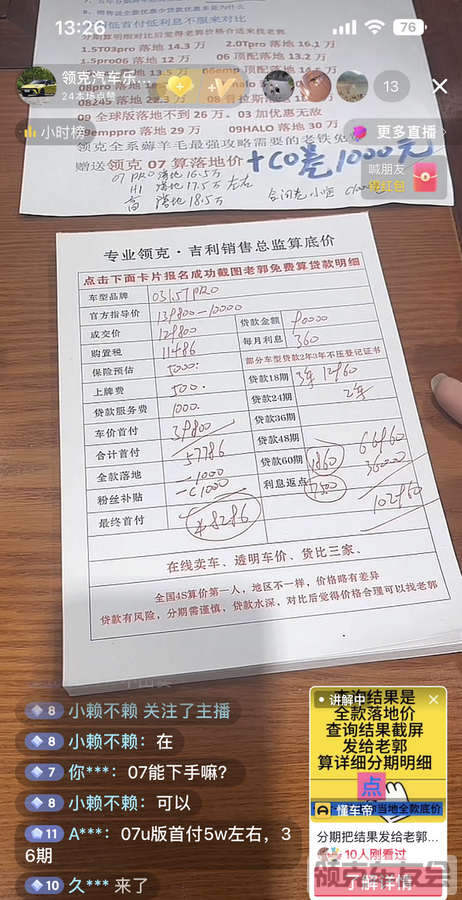 13:26
76
分期算明细对比后觉得价格合适来找老郭
1.5T03pro 落地 14.3 万 2.0Tpro 落地 16.1 万
1.5pro06 落地 12 万 06 顶配落地 13.2 万
领克汽车乐...
24本场点赞
13
小时榜
更多直播
09 全球版落地不到 26 万。03 加优惠无敌
09emppro 落地 29 万 09HALO 落地 30 万
领克全系薅羊毛最强攻略需要的老铁免
赠送领克 07 算落地价 +CO差1000元
07 PRO 落地 16.5万
落地 17.5万 左右
高 落地 18.5万
喊朋友
抢红包
专业领克·吉利销售总监算底价
点击下面卡片报名成功截图老郭免费算贷款明细
车型品牌 031.5T PRO
官方指导价 139800-10000
成交价 129800 贷款金额 90000
购置税 11486 每月利息 360
保险预估 5000. 部分车型贷款2年3年不压登记证书
上牌费 500. 贷款18期 3年 12960
贷款服务费 1000. 贷款24期 2年
车价首付 39800 贷款36期
合计首付 57786 贷款48期 66960
全款落地 -1000 贷款60期 1860 36000
粉丝补贴 -C1000 利息返点 7500
最终首付 48286 102960
在线卖车、透明车价、货比三家、
全国4S算价第一人，地区不一样，价格略有差异
贷款有风险，分期需谨慎，贷款水深，对比后觉得价格合理可以找老郭
8 小赖不赖 关注了主播
8 小赖不赖：在
7 你***：07能下手嘛?
8 小赖不赖：可以
11 A***：07u版首付5w左右，3
6期
10 久*** 来了
讲解中
查询结果是
全款落地价
查询结果截屏
发给老郭
算详细分期明细
点
懂车帝
当地全款底价
分期把结果发给老郭...
10人刚看过
了解详情
领克车友会